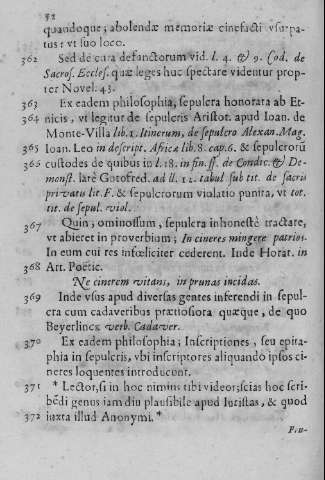 52
quandoque; abolendæ memoriæ cinefacti vsurpa-
tus: vt suo loco.
362 Sed de cura defunctorum vid. l. 4. & 9. Cod. de
Sacros. Eccles. quæ leges huc spectare videntur prop-
ter Novel. 43.
363 Ex eadem philosophia, sepulcra honorata ab Et-
364 nicis, vt legitur de sepulcris Aristot. apud Ioan. de
Monte-Villa lib. 1. Itinerum, de sepulcro Alexan. Mag.
365 Ioan. Leo in descript. Africæ lib. 8. cap. 6. & sepulcrorũ
366 custodes de quibus in l. 18. in fin. ff. de Condic. & De-
monst. latè Gotofred. ad ll. 12. tabul. sub tit. de sacris
privatis lit. F. & sepulcrorum violatio punita, vt tot.
tit. de sepul. viol.
367 Quin, ominosum, sepulcra inhonestè tractare,
vt abieret in proverbium; In cineres mingere patrios.
In eum cui res infœliciter cederent. Inde Horat. in
368 Art. Poëtic.
Ne cinerem vitans, in prunas incidas.
369 Inde vsus apud diversas gentes inferendi in sepul-
cra cum cadaveribus prætiosiora quæque, de quo
Beyerlincx verb. Cadaver.
370 Ex eadem philosophia; Inscriptiones, seu epita-
phia in sepulcris, vbi inscriptores aliquando ipsos ci-
neres loquentes introducunt.
371 * Lector, si in hoc nimius tibi videor; scias hoc scri-
bẽdi genus iam diu plausibile apud Iuristas, & quod
372 iuxta illud Anonymi. *